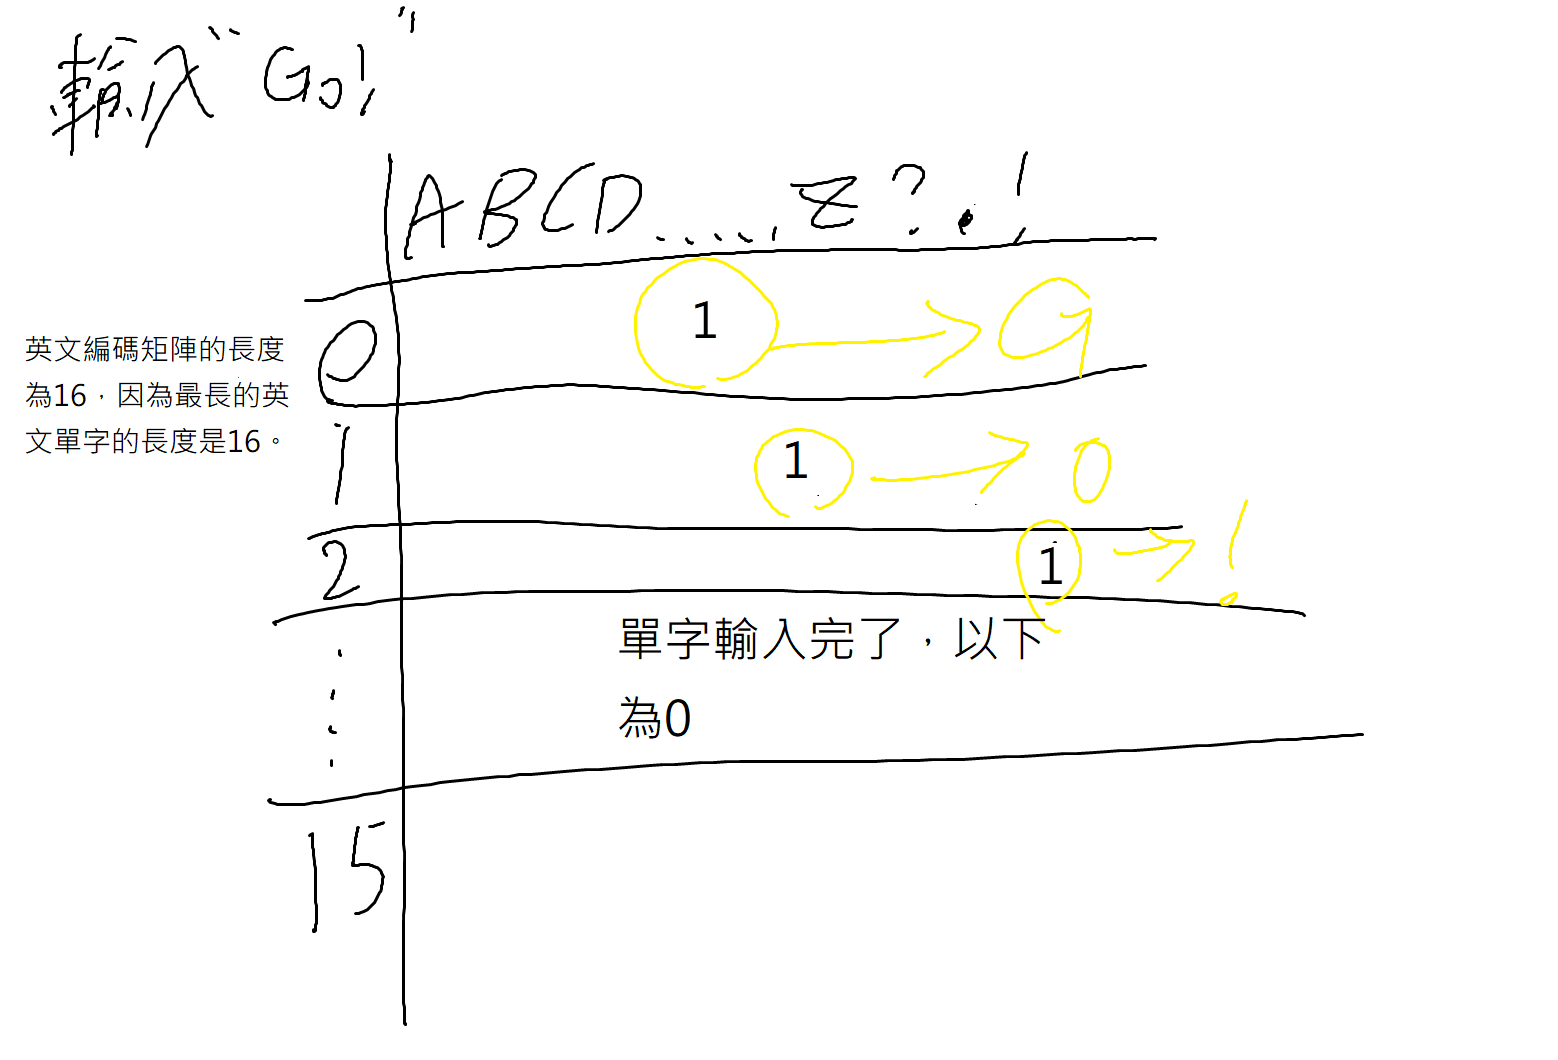 輸入“Go!”
ABCD.....Z?.!
0 1 g
英文編碼矩陣的長度
為16，因為最長的英
文單字的長度是16。
1 1 o
2 1 !
單字輸入完了，以下
為0
15